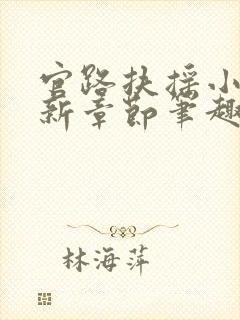 官路扶摇小
新章节笔趣
林海萍